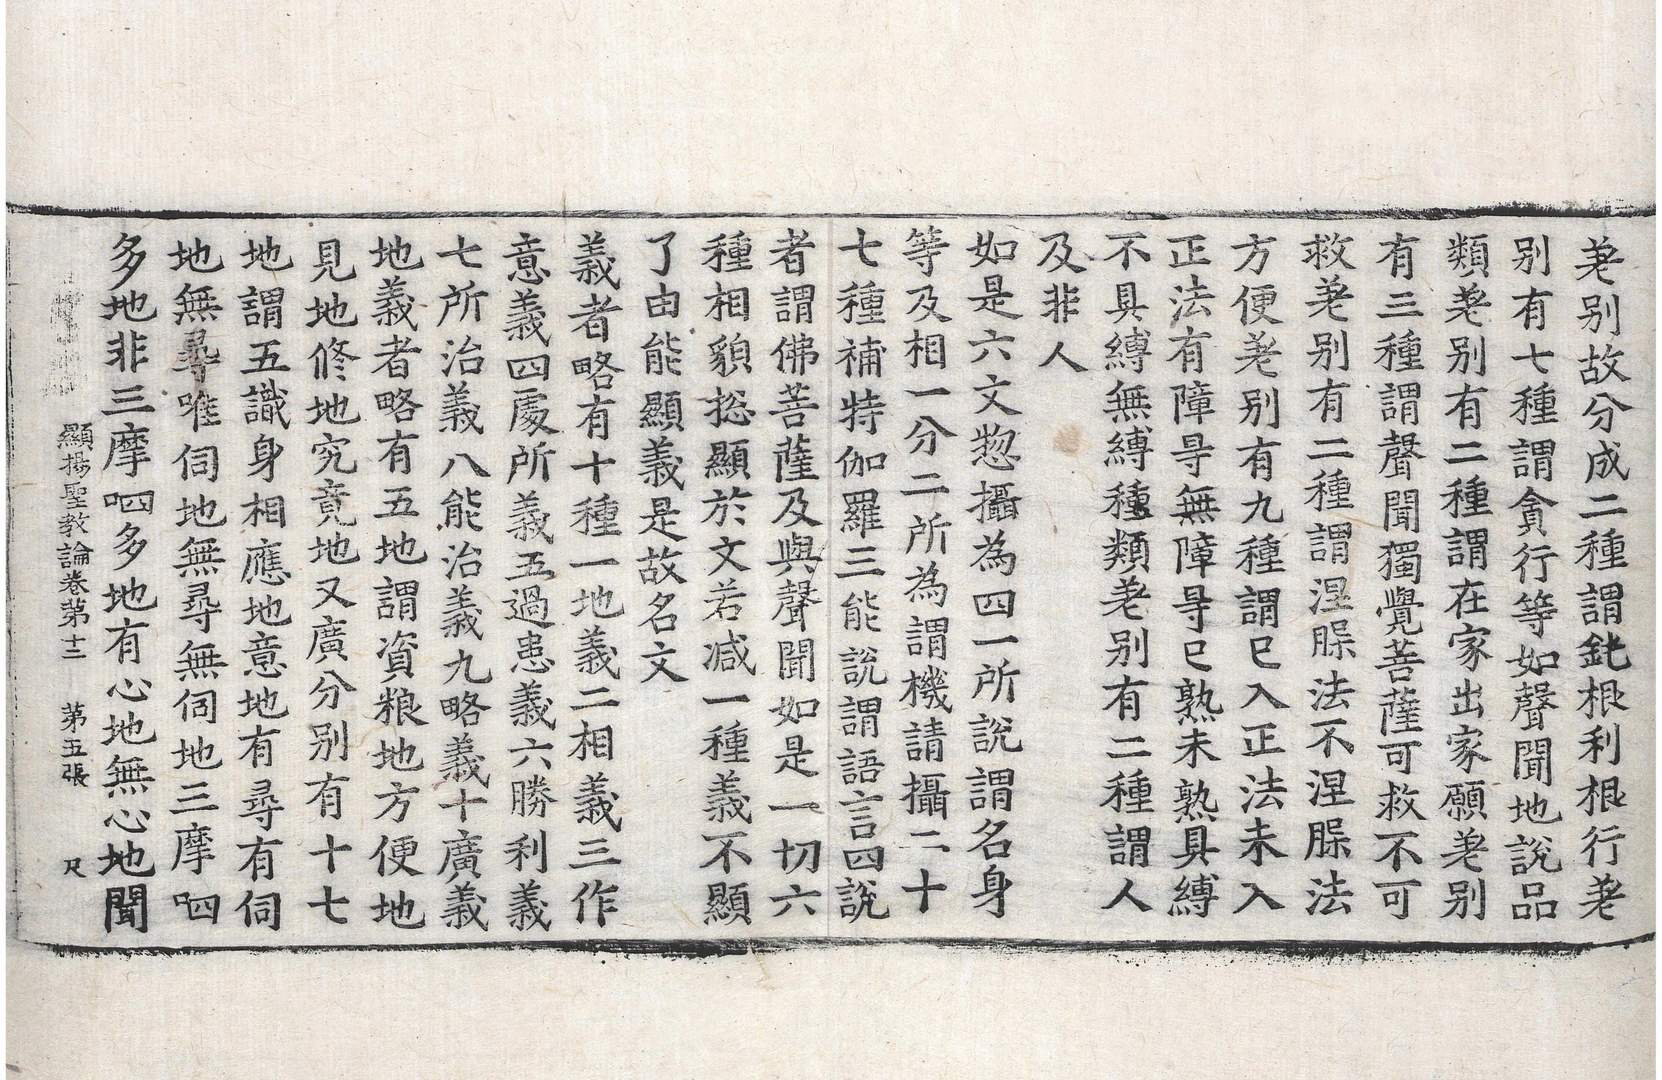 差别故分成二種謂鈍根利根行差
别有七種謂貪行等如聲聞地說品
類差别有二種謂在家出家願差别
有三種謂聲聞獨覺菩薩可救不可
救差别有二種謂涅脲法不涅脲法
方便差别有九種謂已入正法未入
正法有障㝵無障㝵已熟未熟具縛
不具縛無縛種類差别有二種謂人
及非人
如是六文惣攝為四一所說謂名身
等及相一分二所為謂機請攝二十
七種補特伽羅三能說謂語言四說
者謂佛菩薩及與聲聞如是一切六
種相貌捴顯於文若减一種義不顯
了由能顯義是故名文
義者略有十種一地義二相義三作
意義四處所義五過患義六勝利義
七所治義八能治義九略義十廣義
地義者略有五地謂資粮地方便地
見地修地究竟地又廣分别有十七
地謂五識身相應地意地有尋有伺
地無尋唯伺地無尋無伺地三摩呬
多地非三摩呬多地有心地無心地聞
顯揚聖教論卷第十二 第五張 尺